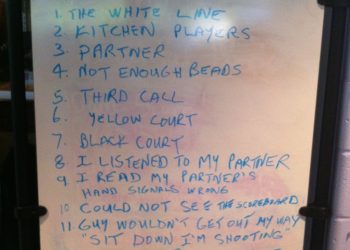 1. THE WHITE LINE
2. KITCHEN PLAYERS
3. PARTNER
4. NOT ENOUGH BEADS
5. THIRD CALL
6. YELLOW COURT
7. BLACK COURT
8 I LISTENED TO MY PARTNER
9 I READ MY PARTNER'S
HAND SIGNALS WRONG
10 COULD NOT SEE THE SCOREBOARD
11 GUY WOULDN'T GET OUT MY WAY
"SIT DOWN I'M SHOOTING"